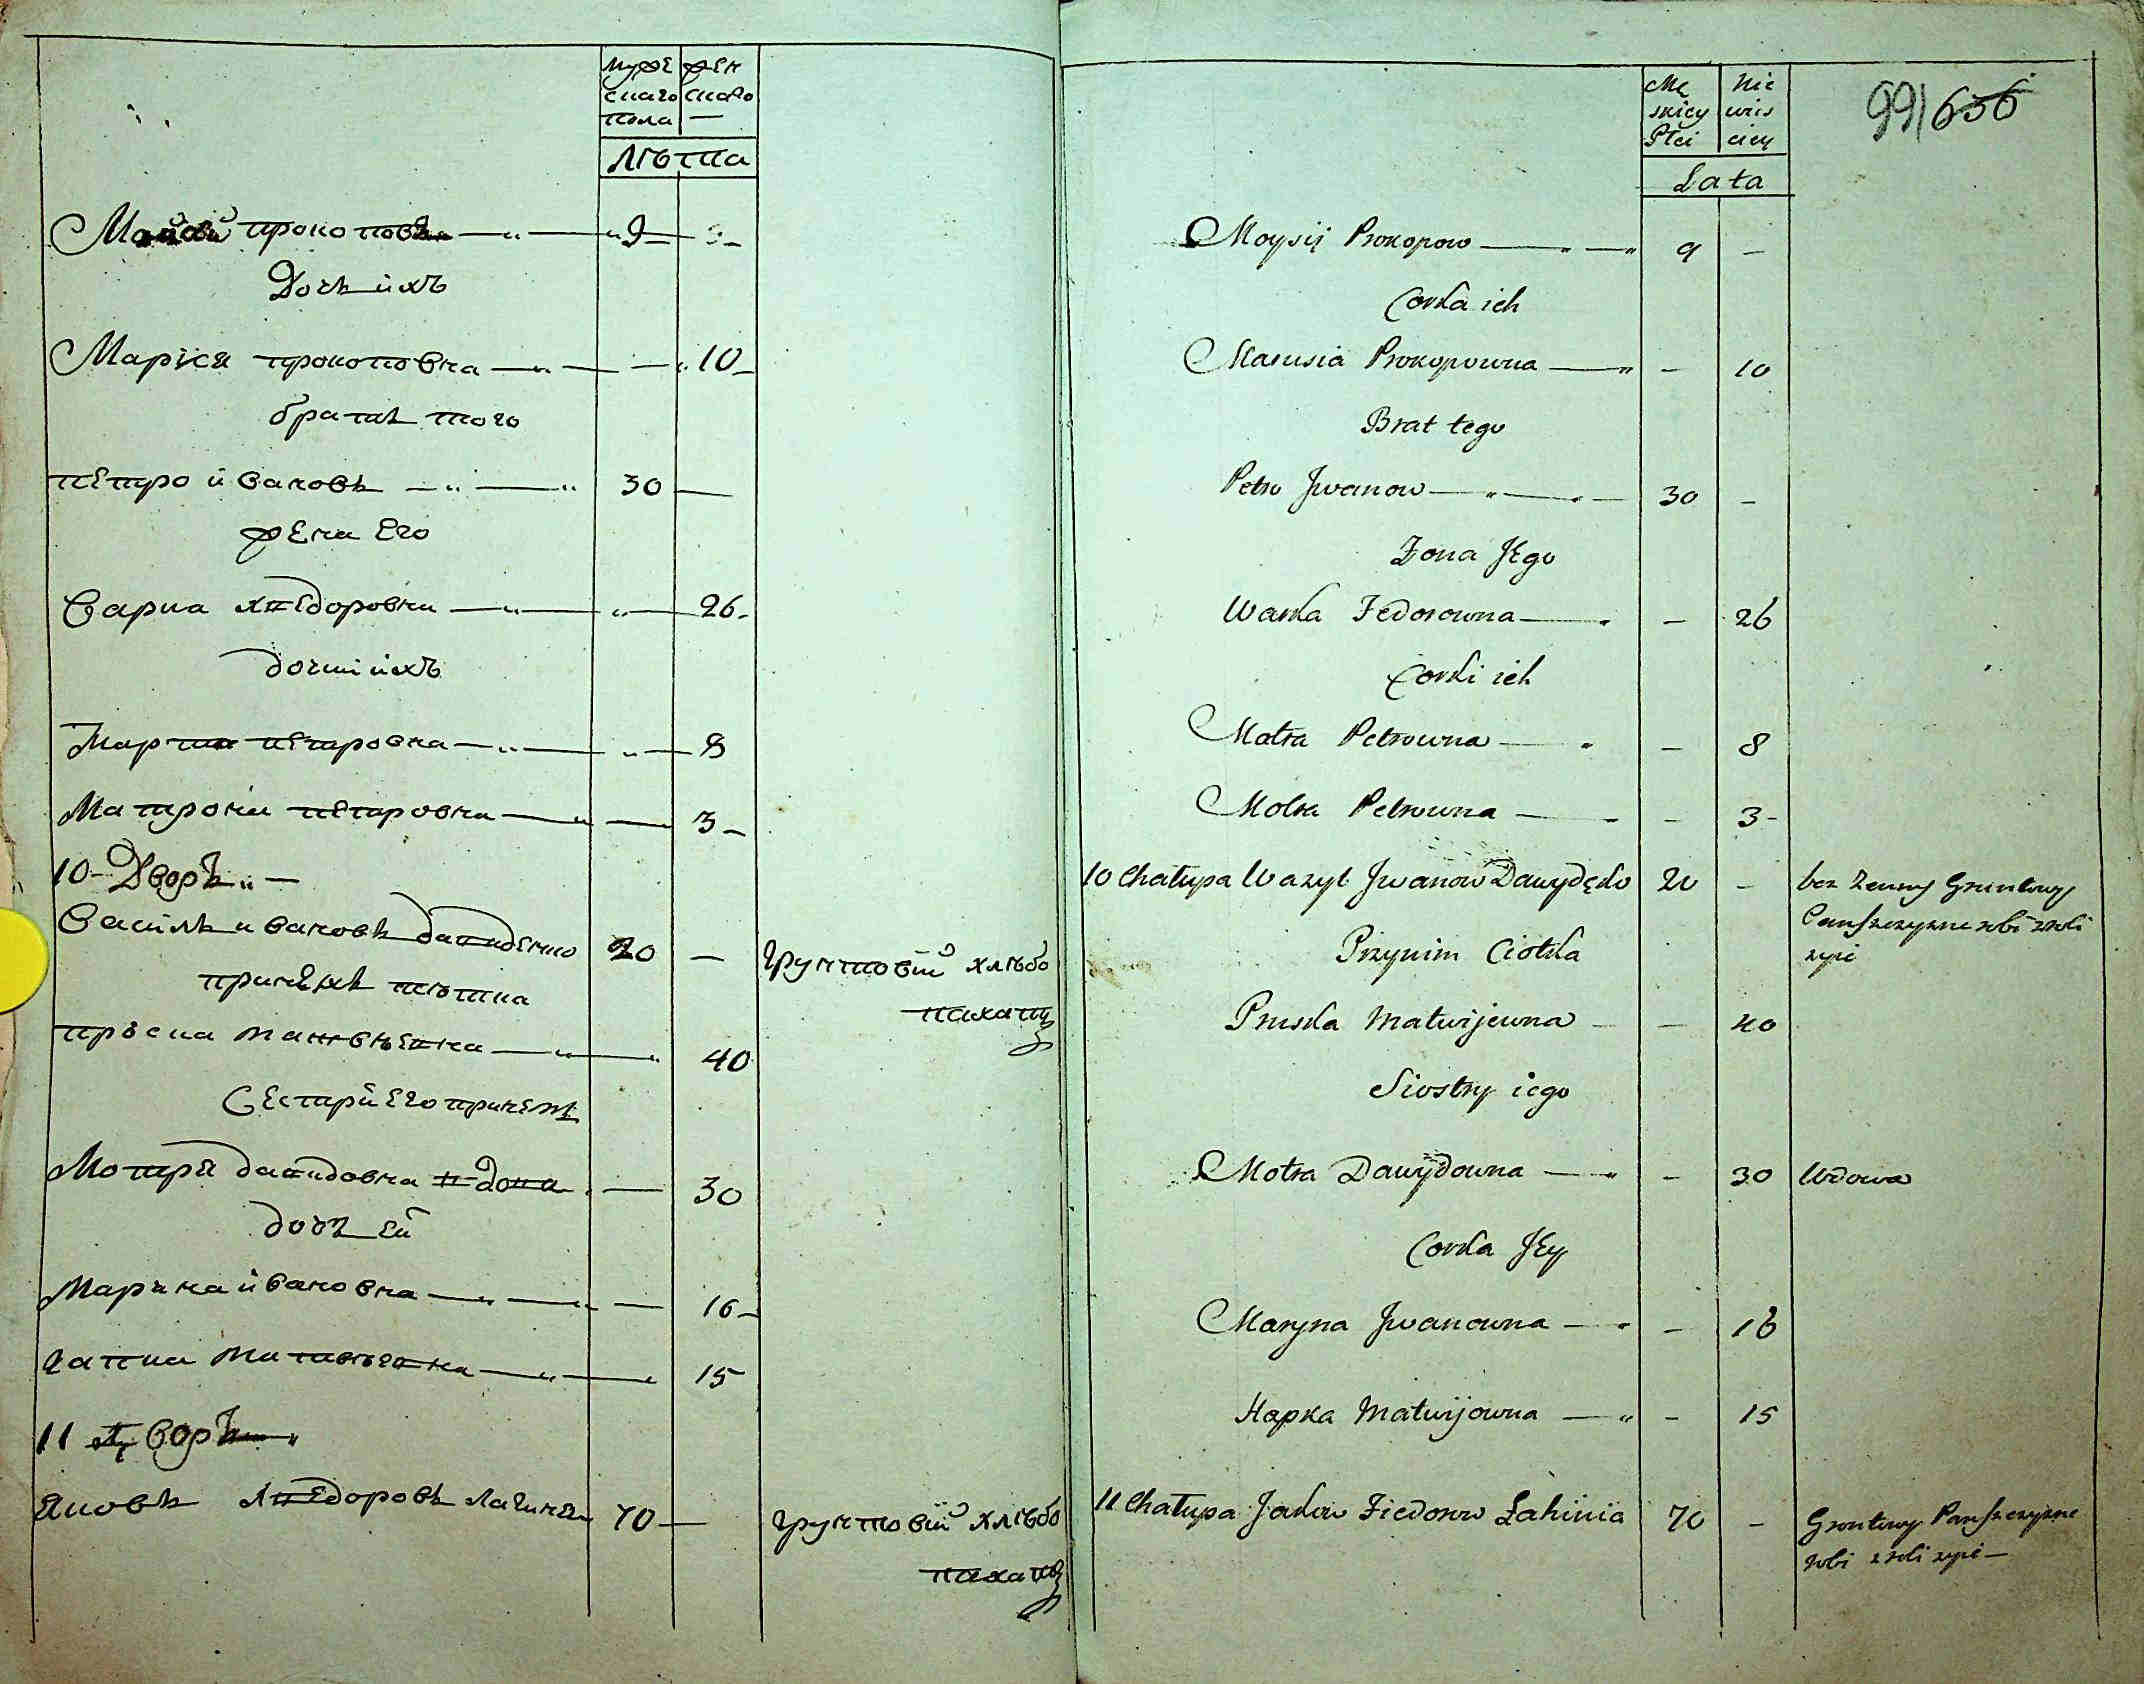 муже жен
скаго скаго
пола —
лѣтна
Мойсій прокоповъ — 9 —
Дочь ихъ
Маріся прокоповна — — 10
братъ того
петро ивановъ — 30 —
жена его
варка хпедоровна — — 26
дочки ихъ
Марта петровна — — 8
Матрона петровна — — 3
10 Дворъ —
Василь ивановъ давиденко 20 — грунтовій хлѣбо
приемъ тіотка пахатц
пріска матвѣевна — 40
Сестри его приемъ
Мотря давидовна вдова — 30
дочъ ей
Марина ивановна — — 16
гапка матвѣевна — 15
11 дворъ —
Яковъ хпедоровъ 70 — грунтовій хлѣбо
пахатц
Mę Nie
skiey wies
Płci ciey
Lata
99 656
Moysij Prokopow — 9 —
Corka ich
Marusia Prokopowna — - 10
Brat tego
Petro Jwanow — 30 -
Zona Jego
Warka Fedorowna — - 26
Corki ich
Motra Petrowna — - 8
Motra Petrowna — - 3
10 Chałupa Wazyl Jwanow Dawydęko 20 - bez Zenny Gruntowy
Przynim Ciotka Panszczyzne robi z roli
zyie
Pruska Matwijewna - - 40
Siostry iego
Motra Dawydowna — - 30 Wdowa
Corka Jey
Maryna Jwanowna — - 16
Hapka Matwijowna — - 15
11 Chałupa Jakow Fiedorow Łahinia 70 - Gruntowy Panszczyzne
robi z roli zyie —